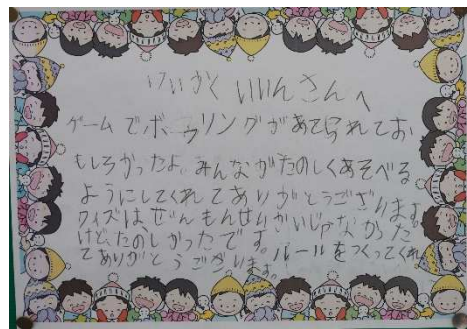 けいかくいいんさんへ
ゲームでボウリングがあてられてお
もしろかったよ。みんながたのしくあそべる
ようにしてくれてありがとうございます。
クイズは、ぜんもんせいかいじゃなかった
けど、たのしかったです。ルールをつくってくれ
てありがとうございます。